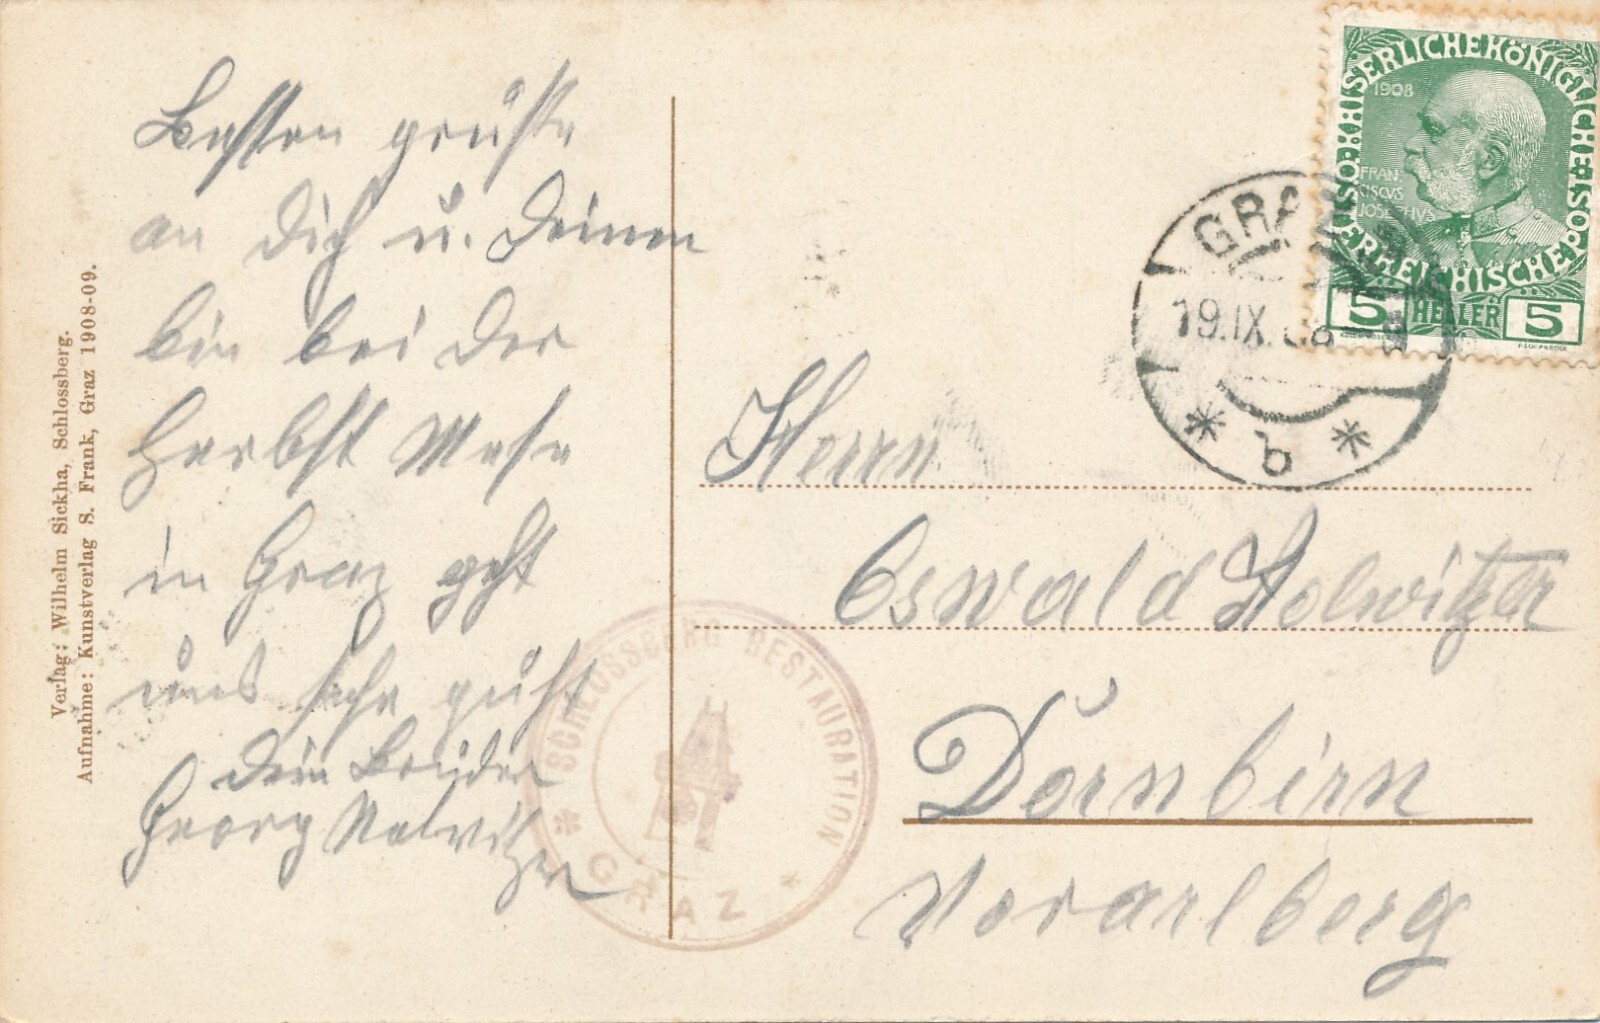 Besten grüße
an Dich u. Deinen
bin bei der
Herbst Mese
in Graz geht
uns sehr guht
Dein Bruder
Georg
Verlag: Wilhelm Sickha, Schlossberg.
Aufnahme: Kunstverlag S. Frank, Graz 1908-09.
SCHLOSSBERG RESTAURATION
* GRAZ *
KAISERLICHE KÖNIGLICHE ÖSTERREICHISCHE POST
1908
FRAN
CISCVS
JOSEPHVS
5 HELLER 5
GRAZ
19.IX.08
* b *
Herrn
Oswald
Dornbirn
Vorarlberg